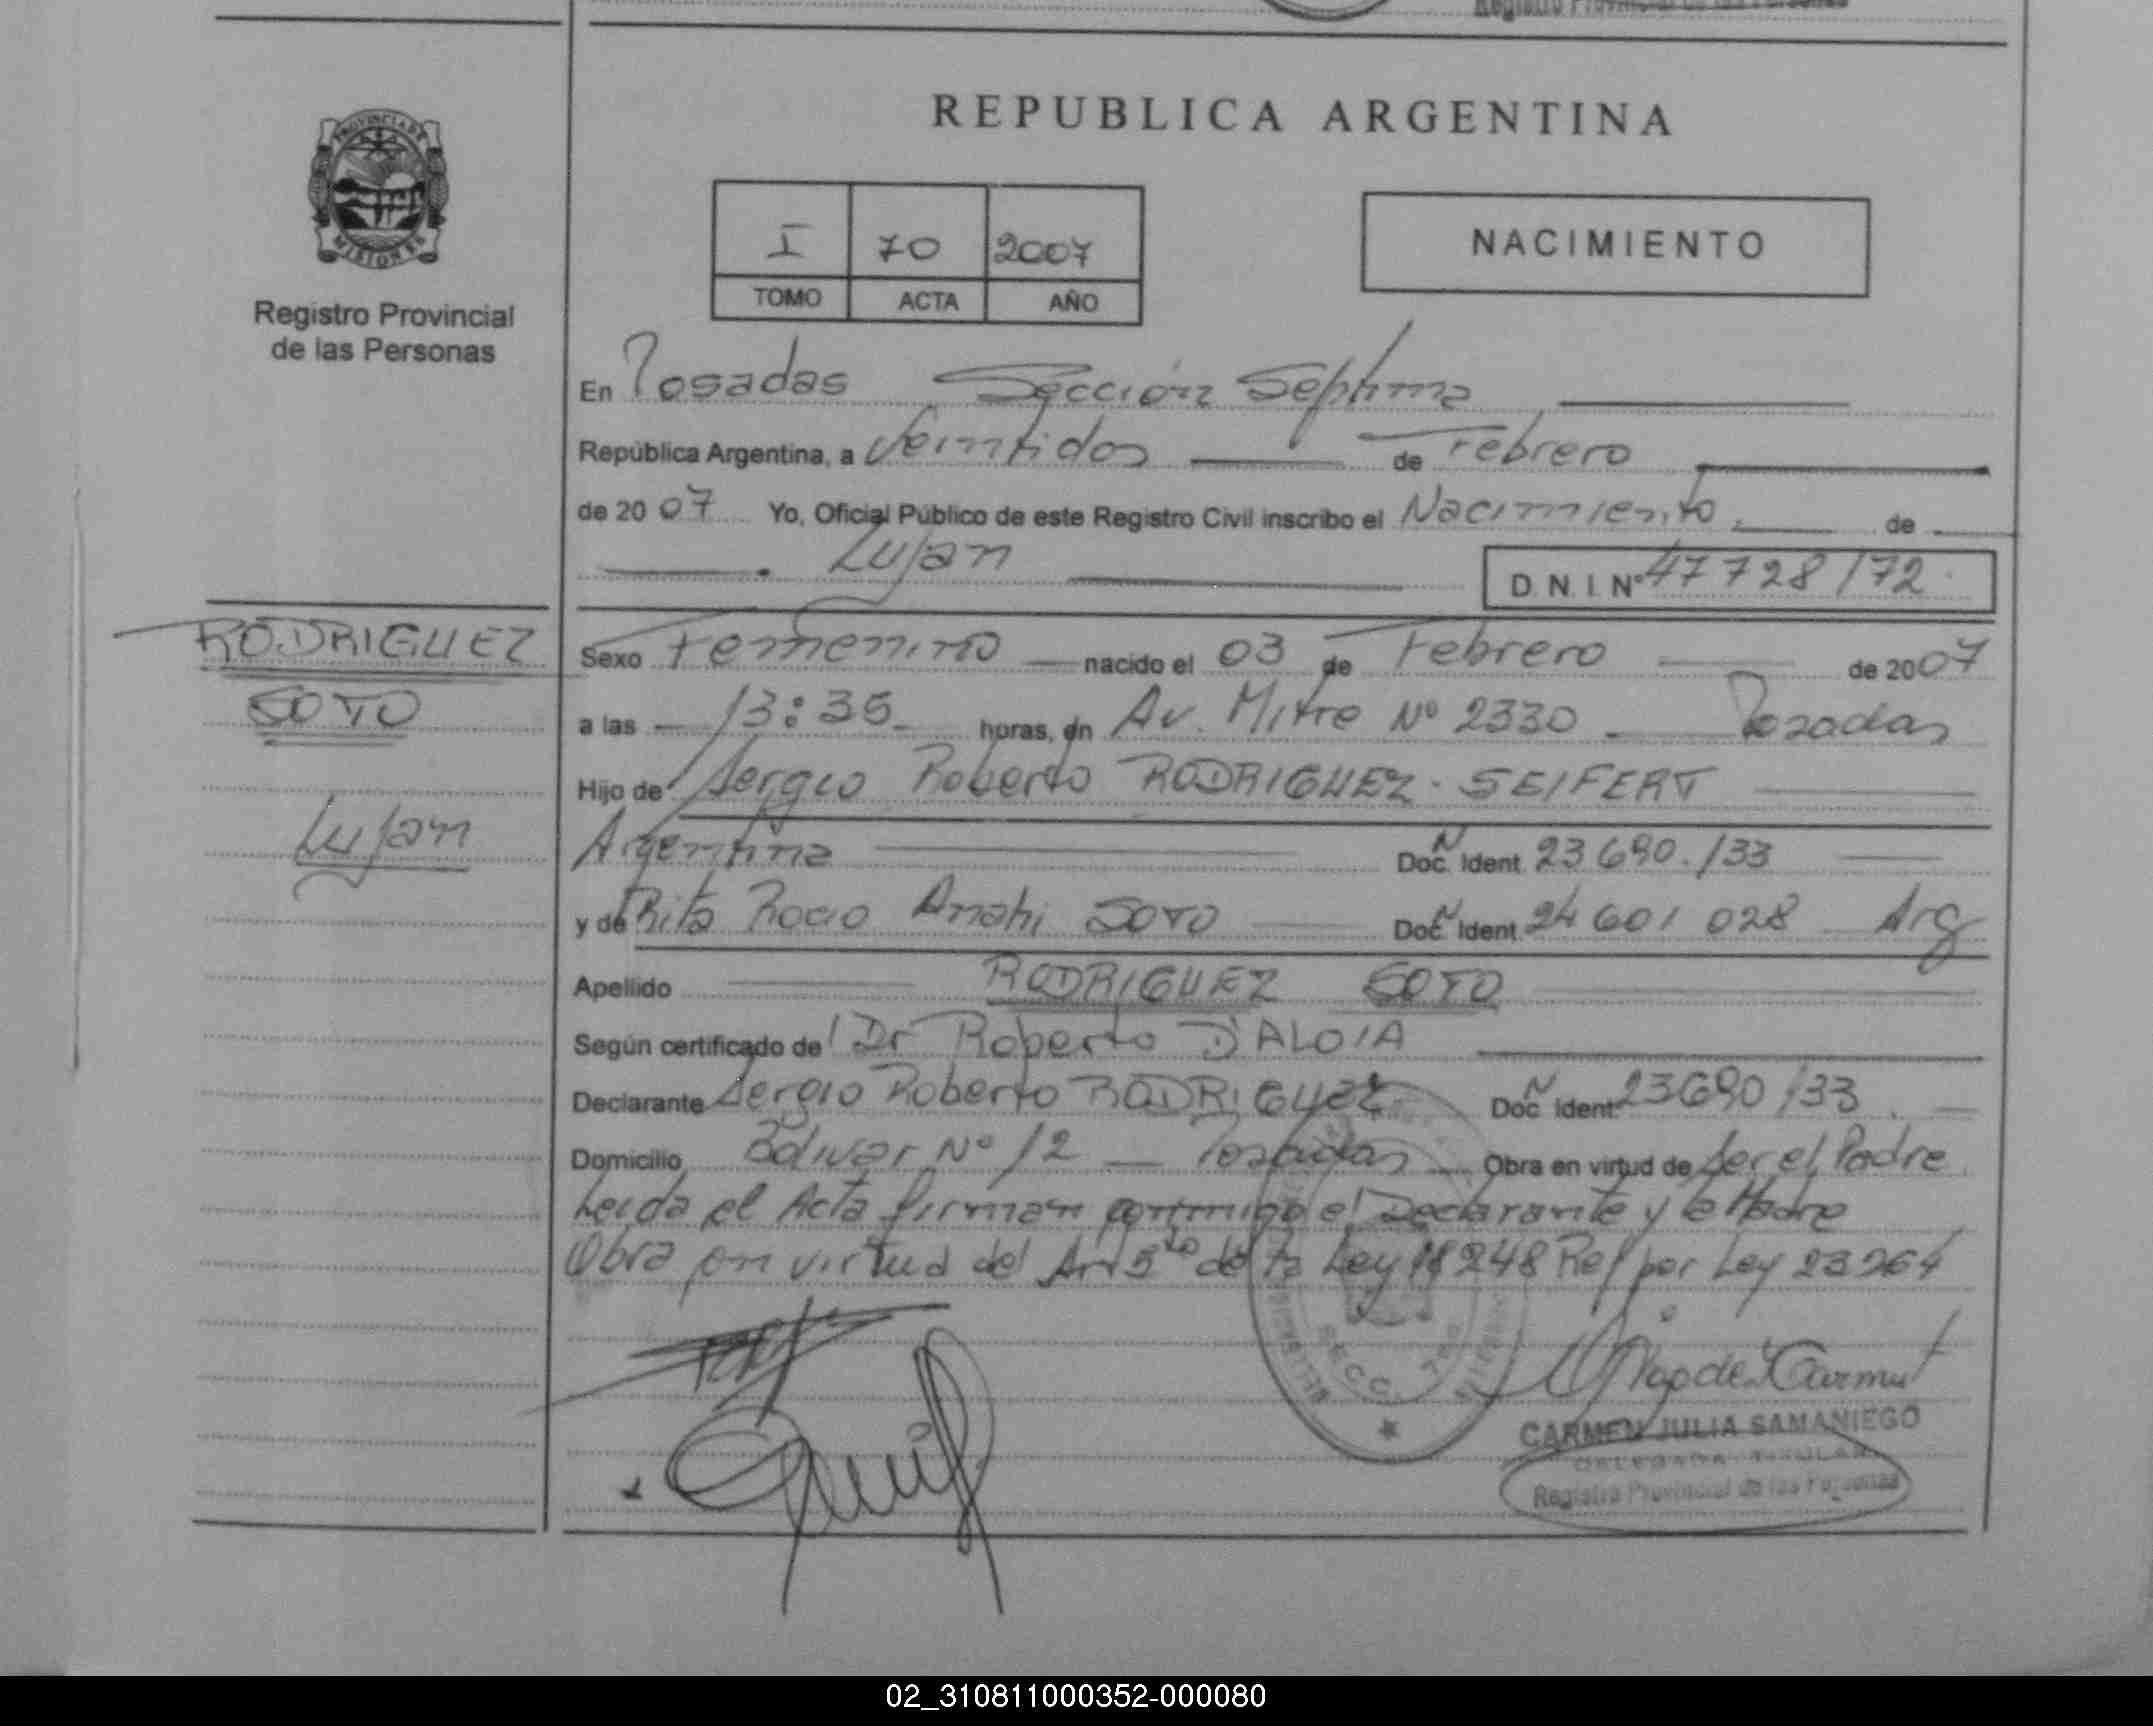 Registro Provincial de las Personas
REPUBLICA ARGENTINA
PROVINCIA DE
MISIONES
Registro Provincial
de las Personas
I 70 2007
TOMO ACTA AÑO
NACIMIENTO
En Posadas Sección Septima
República Argentina, a Veintidos de Febrero
de 2007 Yo, Oficial Público de este Registro Civil inscribo el Nacimiento de
Lujan
D. N. I. Nº 47 728 172
RODRIGUEZ
SOTO
Lujan
Sexo Femenino nacido el 03 de Febrero de 2007
a las 13:35 horas, en Av. Mitre Nº 2330 Posadas
Hijo de Sergio Roberto RODRIGUEZ - SEIFERT
Argentina Doc. Ident. 23 690. 133
y de Rita Rocio Anahi SOTO Doc. Ident. 24 601 028 Arg
Apellido RODRIGUEZ SOTO
Según certificado de Dr Roberto D'ALOIA
Declarante Sergio Roberto RODRIGUEZ Doc. Ident. 23690 133
Domicilio Bolivar Nº 12 Posadas Obra en virtud de Ser el Padre
Leida el Acta firman conmigo el Declarante y la Madre
Obra en virtud del Art 5to de la Ley 18248 Ref por Ley 23264
SECC. 7ma
CARMEN JULIA SAMANIEGO
DELEGADA TITULAR
Registro Provincial de las Personas
02_310811000352-000080